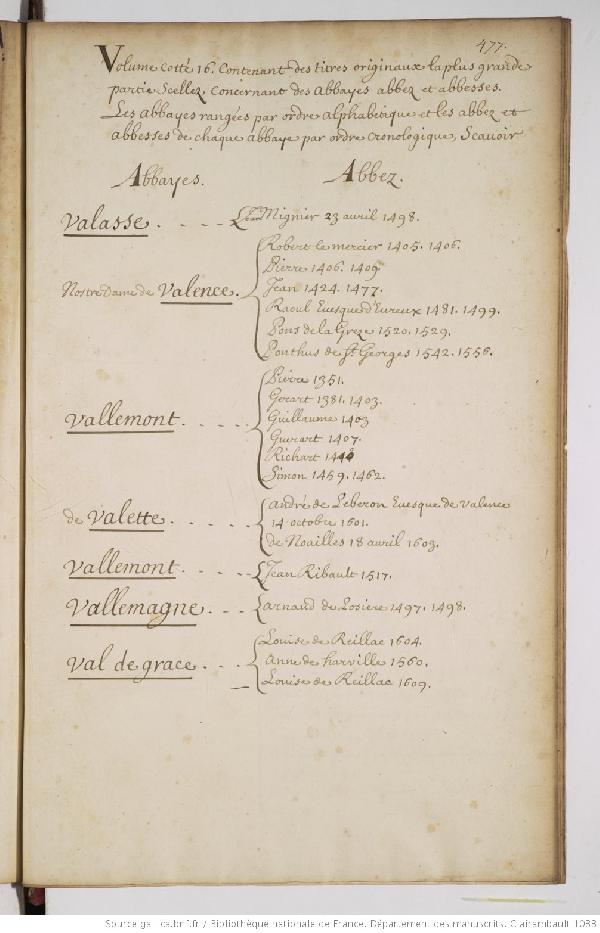 477.
Volume cotté 16. Contenant des titres originaux la plus grande
partie Scellez, concernant des abbayes abbez et abbesses.
Les abbayes rangées par ordre alphabetique et les abbez et
abbesses de chaque abbaye par ordre cronologique, Scauoir
Abbayes. Abbez.
Valasse. Mignier 23 avril 1498.
Robert le mercier 1405. 1406.
Pierre 1406. 1409
Nostre Dame de Valence. Jean 1424. 1477.
Raoul Euesque d'Eureux 1481. 1499.
Pons de la Greze 1520. 1529.
Ponthus de St Georges 1542. 1556.
Pierre 1351.
Gerart 1381. 1403.
Vallemont. Guillaume 1403
Guerart 1407.
Richart
Simon 1459. 1462.
André de Leberon Euesque de Valence
de Valette. 14 octobre 1601.
de Noailles 18 avril 1609.
Vallemont. Jean Ribault 1517.
Vallemagne. Arnaud de Losiere 1497. 1498.
Louise de Reillac 1604.
Val de grace. Anne de harville 1560.
Louise de Reillac 1609.
Source gallica.bnf.fr / Bibliothèque nationale de France. Département des manuscrits. Clairambault 1088